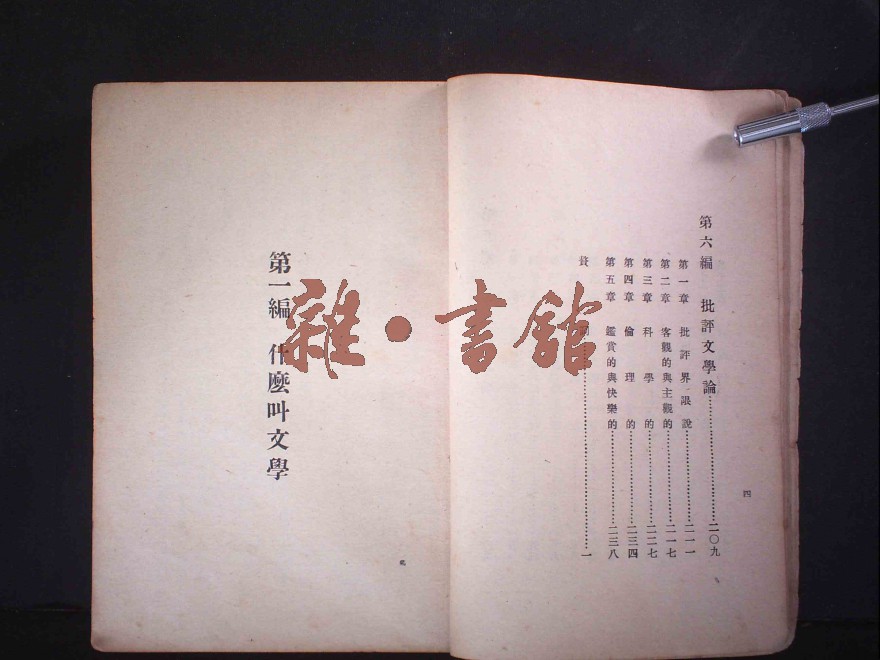 第六編 批評文學論…………二〇九
第一章 批評界限說…………二一一
第二章 客觀的與主觀的…………二一七
第三章 科學的…………二二七
第四章 倫理的…………二三四
第五章 鑑賞的與快樂的…………二三八
…………一
四
第一編 什麼叫文學
雜·書館